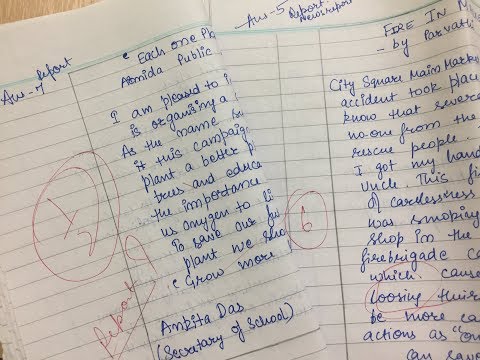 Ans-7 Report
" Each one Pl
Almida Public
I am pleased to i
is organising a
As the name
it this campaig
plant a better p
trees and educa
the importance
us oxygen to li
To save our fu
plant we sho
" Grow more
Ankita Das
(Secretary of School)
Report
Ans-5 Report
Newsreport
FIRE IN M
- by Parvath
City Square Main Marke
accident took place
know that severe
no-one from the
rescue people.
I got my hand
Uncle. This fi
of carelessness
was smoking
shop in the
firebrigade c
which cause
loosing their
be more ca
actions as "on
can sav
6